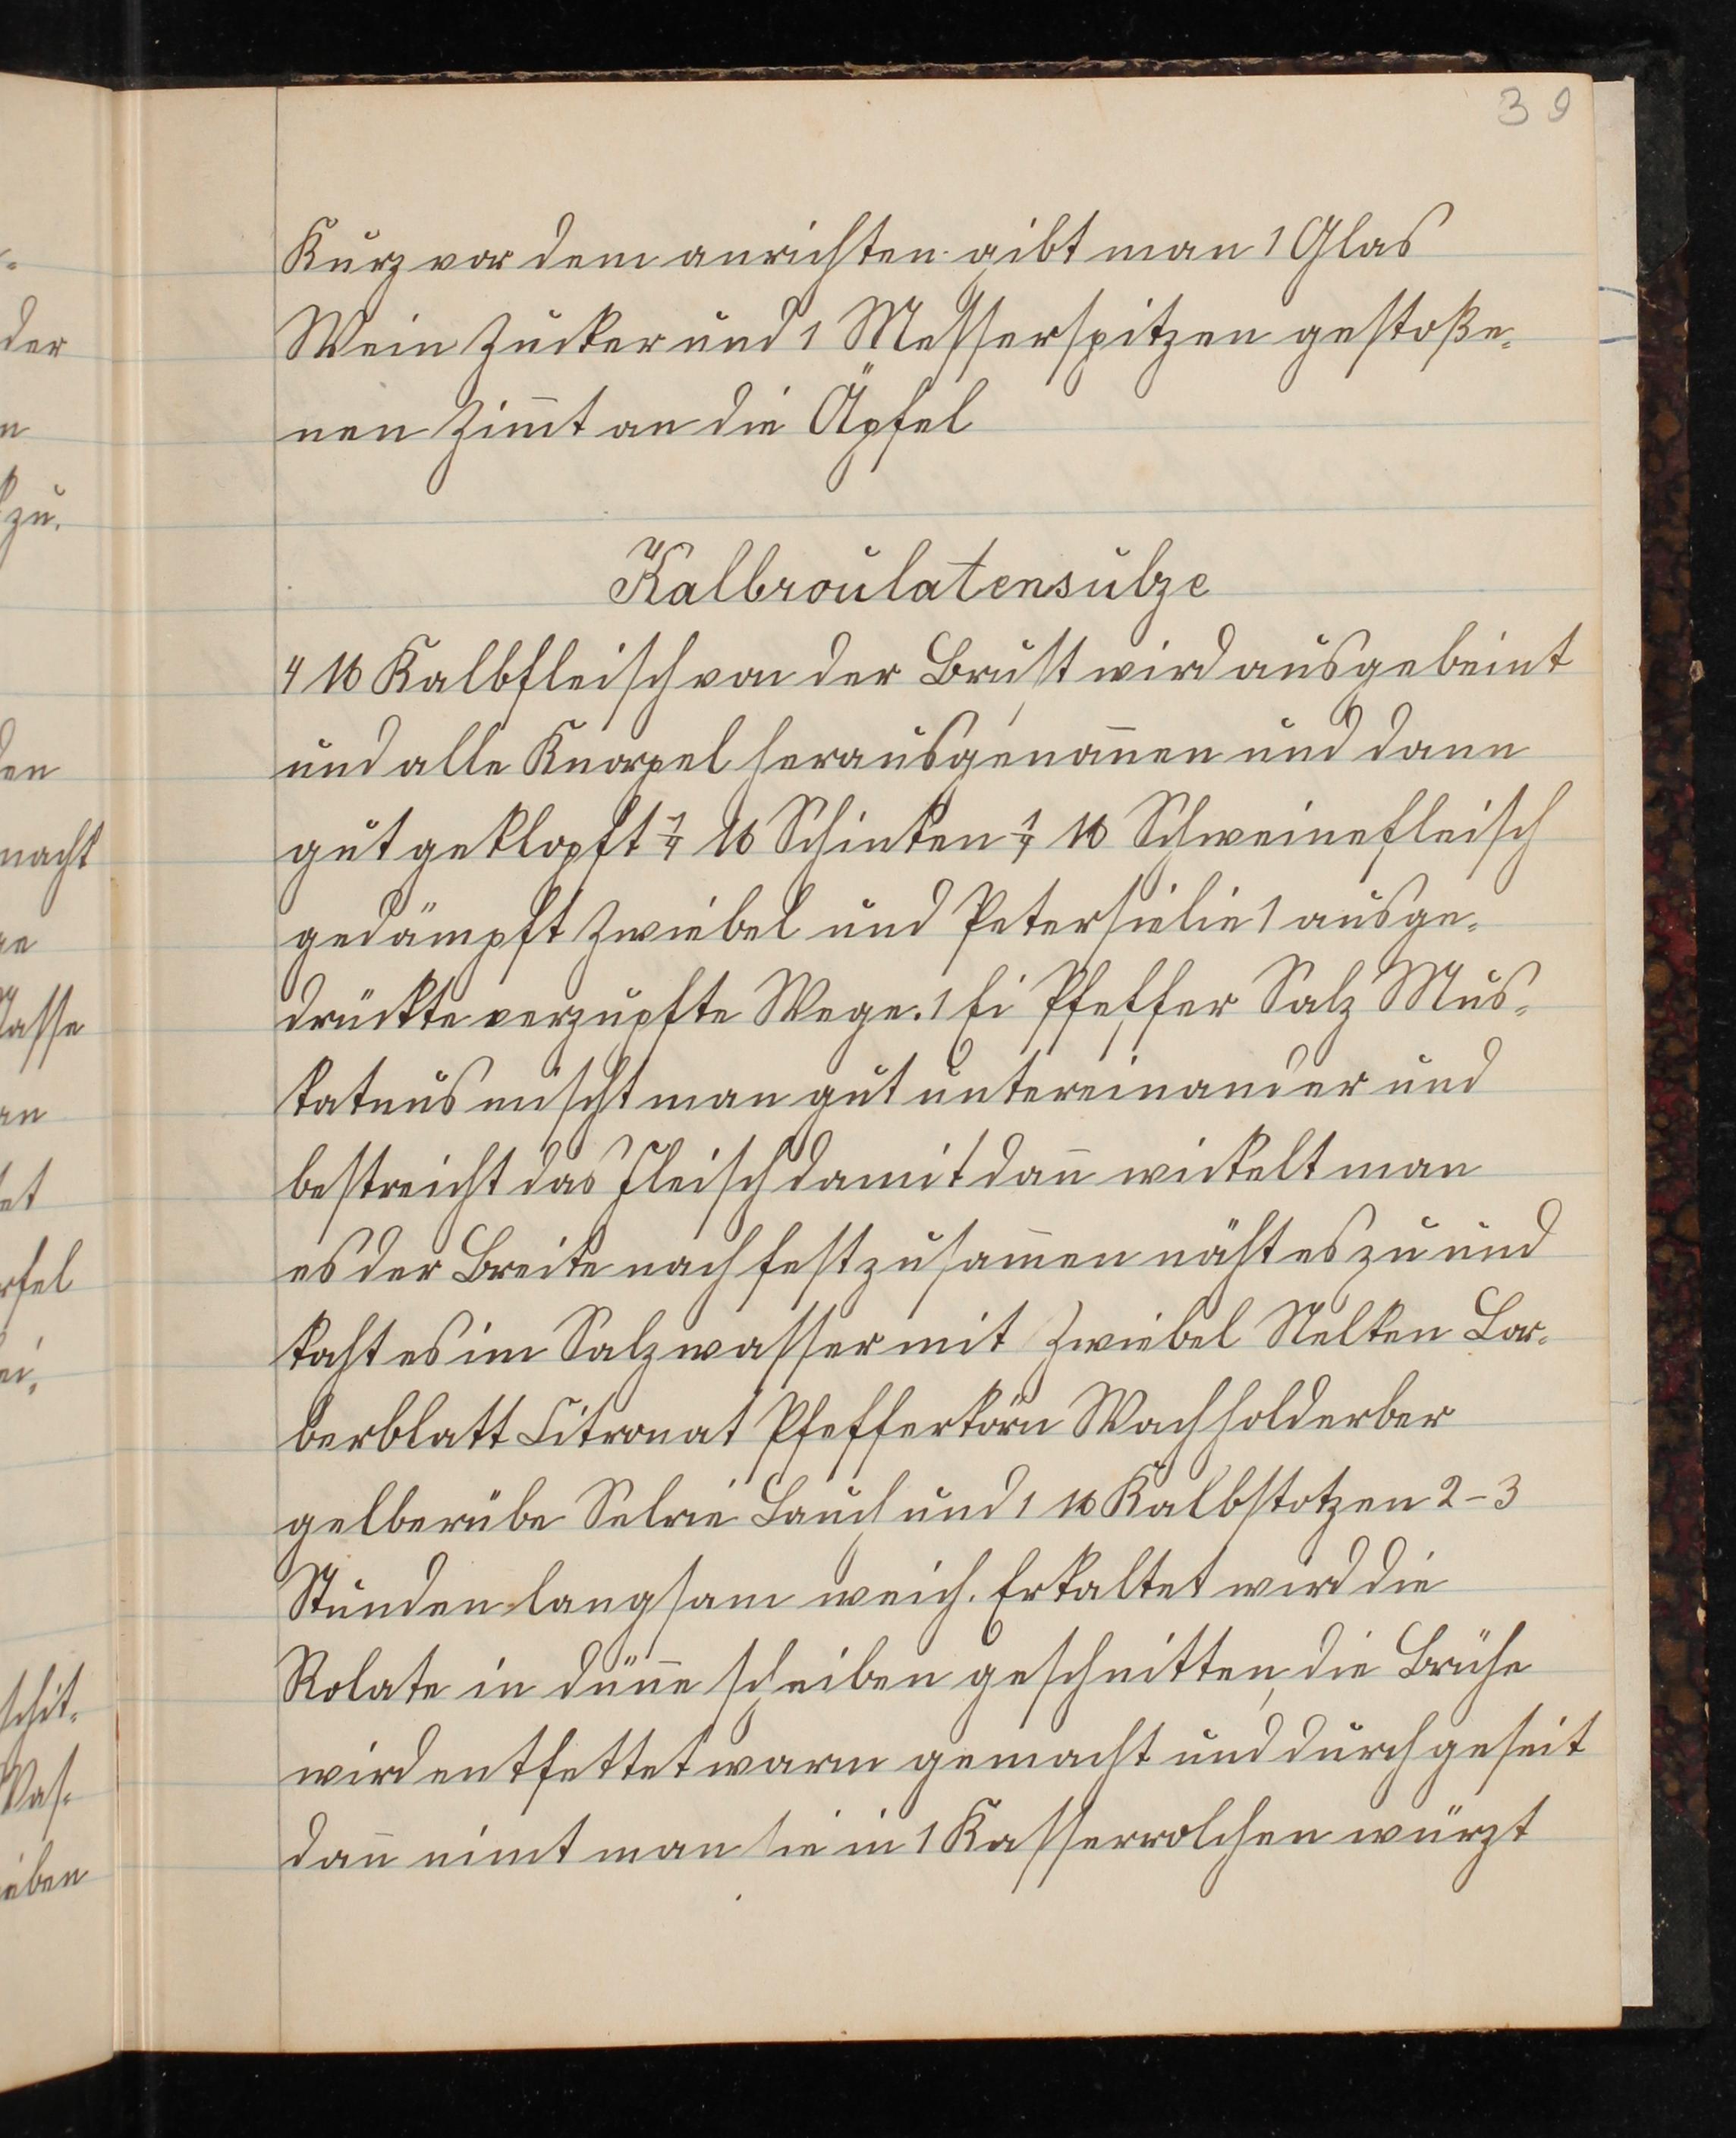 39
Kurz vor dem anrichten gibt man 1 Glas
Wein Zucker und 1 Messerspitzen gestoße-
nen Zim̅t an die Äpfel
Kalbroulatensulze
4 ℔ Kalbfleisch von der Brust wird ausgebeint
und alle Knorpel herausgenom̅en und dann
gut geklopft ¼ ℔ Schinken ¼ ℔ Schweinefleisch
gedämpft Zwiebel und Petersielie 1 ausge-
drückte verzupfte Wege. 1 Ei Pfeffer Salz Mus-
katnus mischt man gut untereinander und
bestreicht das Fleisch damit dan̅ wickelt man
es der Breite nach fest zusam̅en näht es zu und
kocht es im Salzwasser mit Zwiebel Nelken Lor-
berblatt Citronat Pfefferkörn Wachholderber
gelberübe Selrie Lauch und 1 ℔ Kalbstotzen 2-3
Stunden langsam weich. Erkaltet wird die
Rolate in dün̅e scheiben geschnitten, die Brühe
wird entfettet warm gemacht und durch geseit
dan̅ nimt man sie in 1 Kasserrolchen würzt
der
n
kzu.
den
macht
ge
Masse
an
tet
rfel
ei,
schit-
Was-
ieben